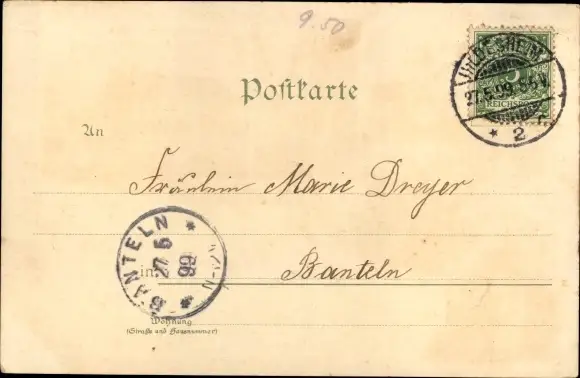 9.50
HILDESHEIM
27.5.99. 5-6 N
* 2 c
5
REICHSPOST
Postkarte
An
Fräulein Marie Dreyer
BANTELN
27 5
99
in Banteln
Wohnung
(Straße und Hausnummer)